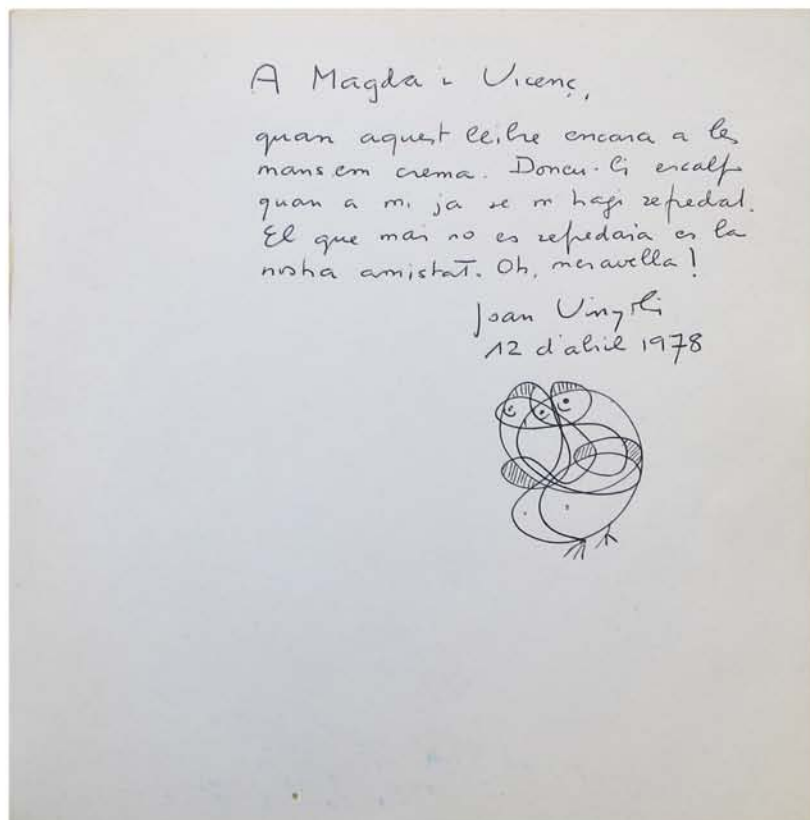 A Magda i Vicenç,
quan aquest llibre encara a les
mans em crema. Doneu-li escalf
quan a mi ja se m hagi refredat.
El que mai no es refredarà es la
nostra amistat. Oh, meravella!
Joan Vinyoli
12 d'abril 1978